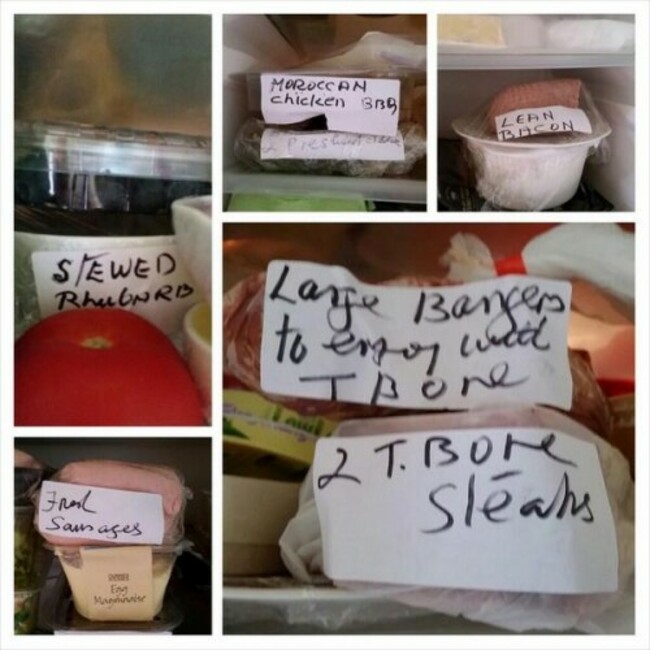 STEWED
RHUBARB
MOROCCAN
chicken BBQ
LEAN
BACON
Large Bangers
to enjoy with
T BONE
2 T. BONE
Steaks
Fresh
Sausages
Egg
Mayonnaise